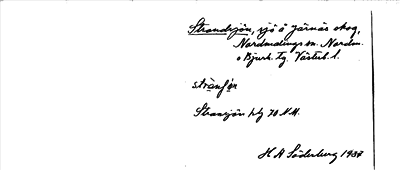 Strandsjön, sjö å Järnäs skog,
Nordmalings sn. Nordm.
o Bjurh. tg. Västerb. l.
stránsjön
Stransjön blg 70 N.M.
H A Söderberg 1937